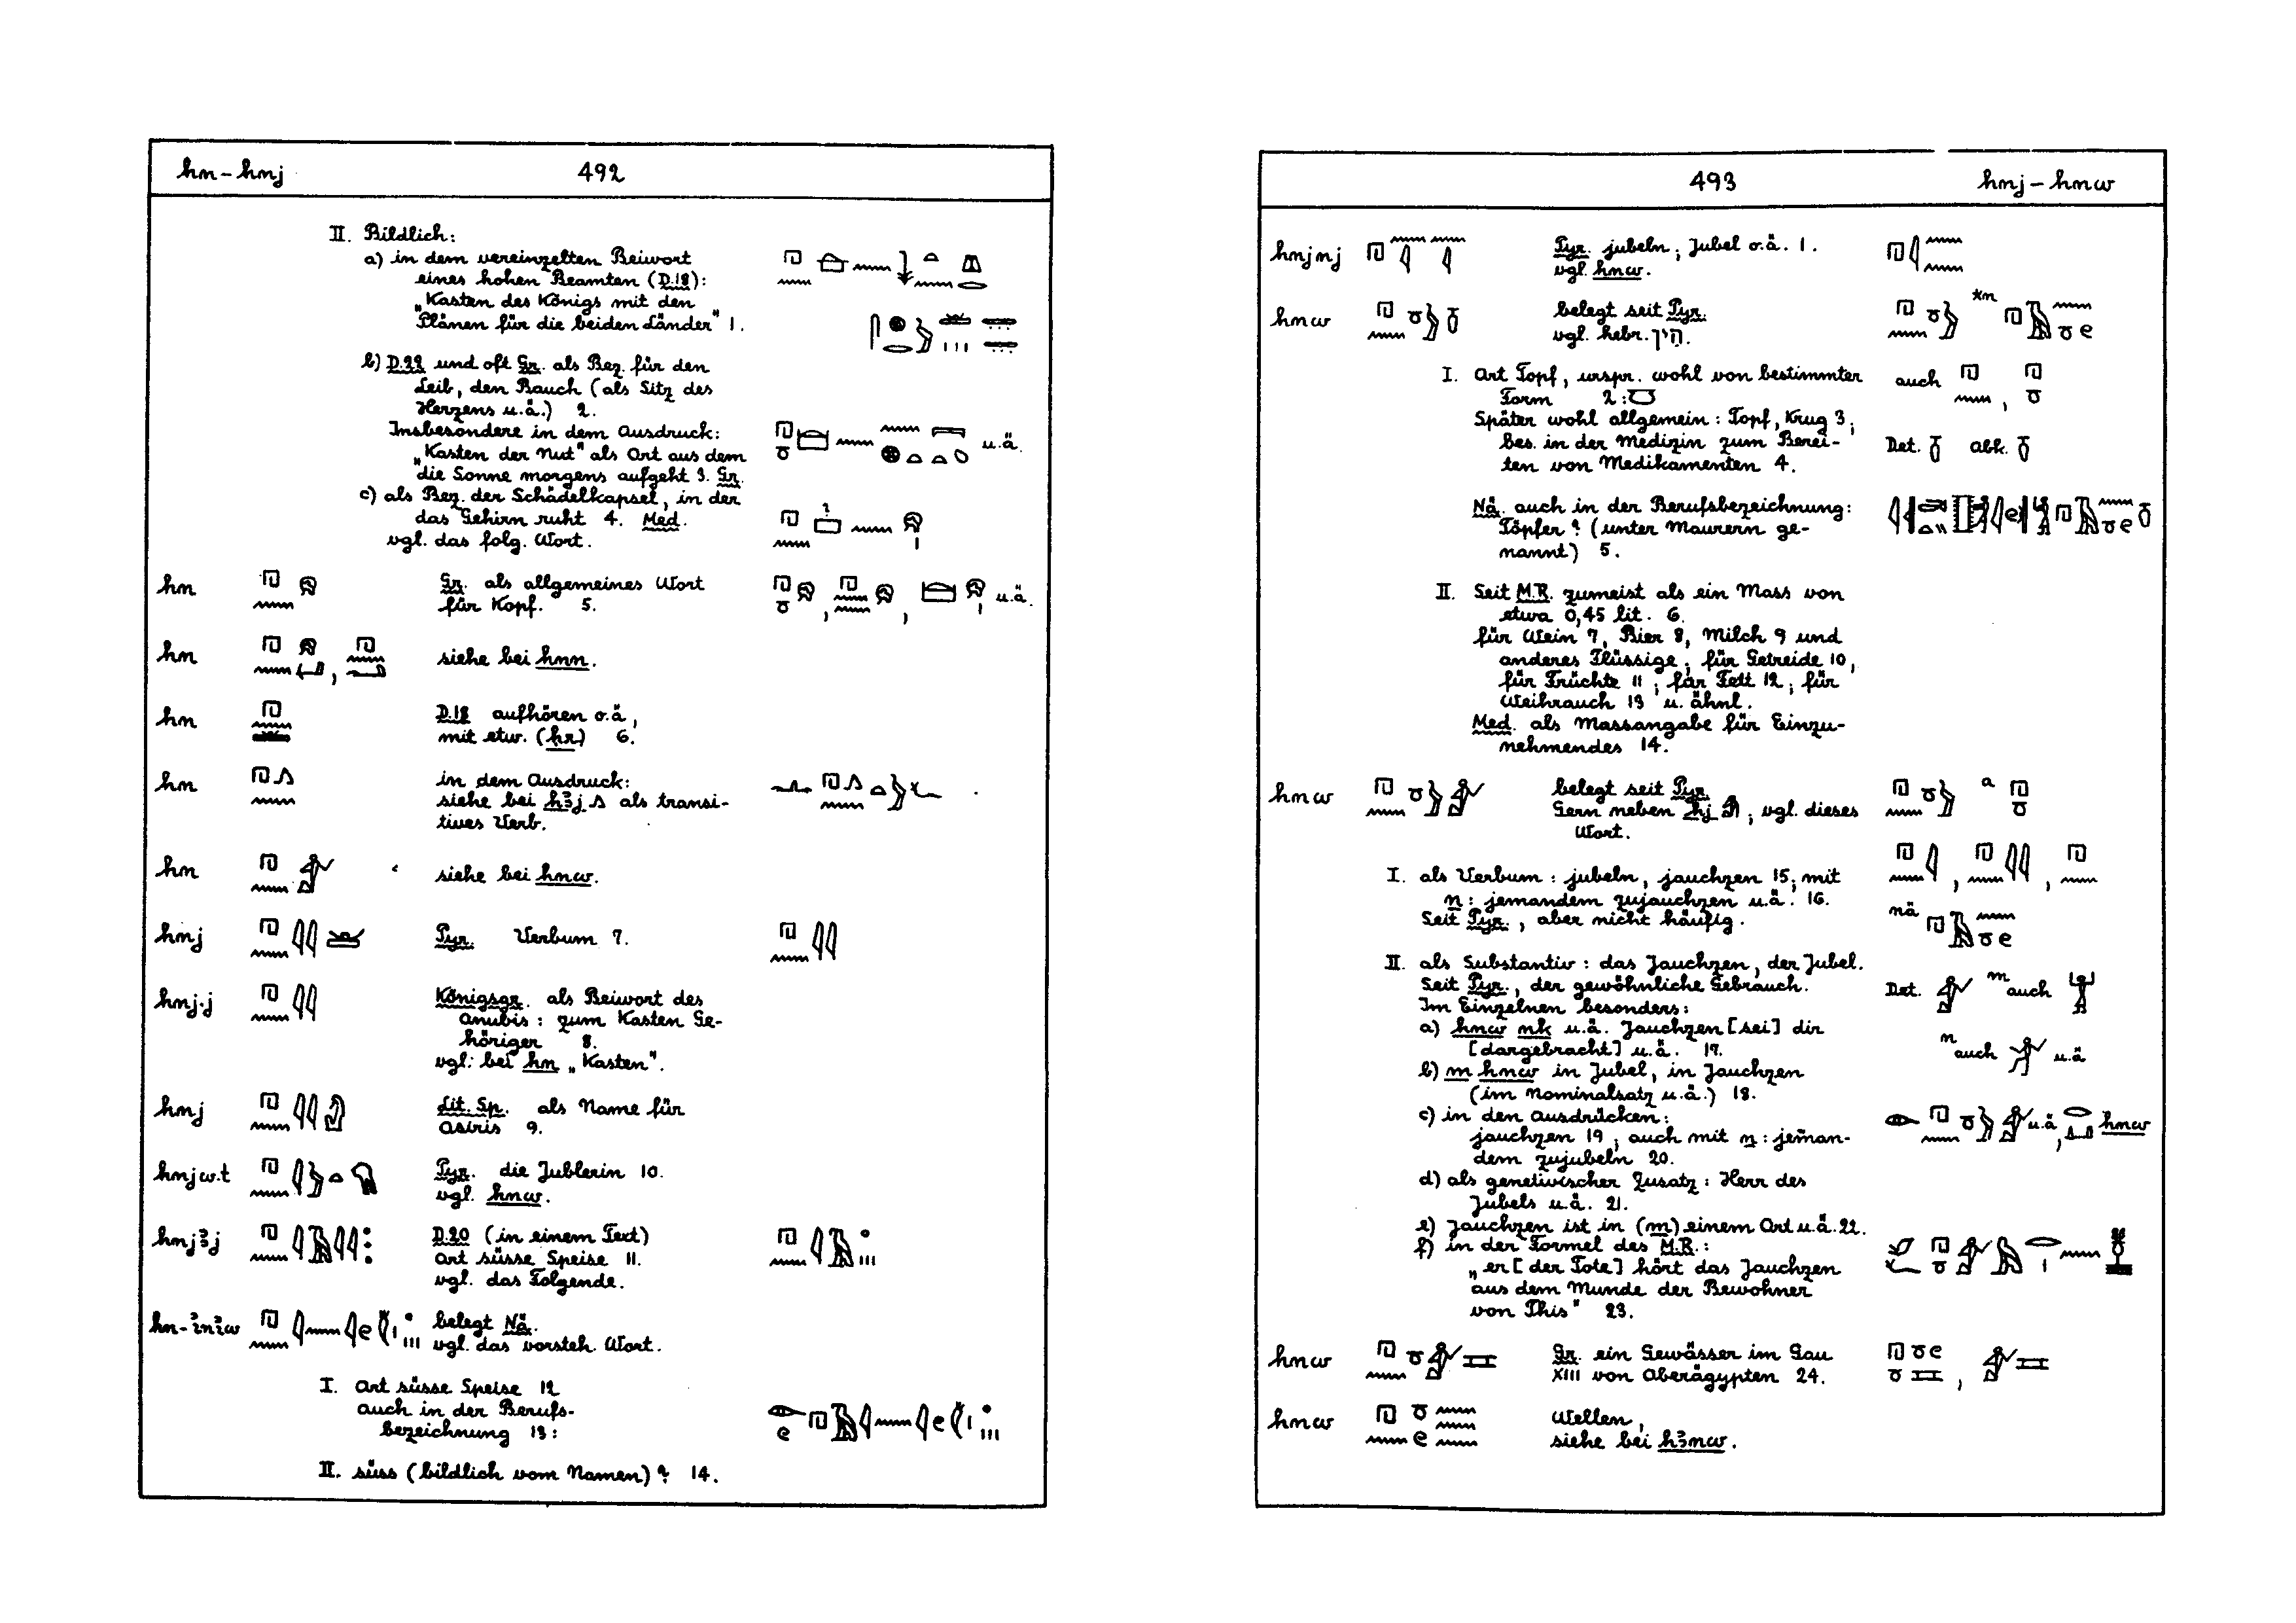 hn – hnj 492
II. Bildlich:
a) in dem vereinzelten Beiwort
eines hohen Beamten (D.18):
„Kasten des Königs mit den
Plänen für die beiden Länder" 1.
b) D.22 und oft Gr. als Bez. für den
Leib, den Bauch (als Sitz des
Herzens u.ä.) 2.
Insbesondere in dem Ausdruck:
„Kasten der Nut" als Ort aus dem u.ä.
die Sonne morgens aufgeht 3. Gr.
c) als Bez. der Schädelkapsel, in der
das Gehirn ruht 4. Med.
vgl. das folg. Wort.
hn Gr. als allgemeines Wort
für Kopf. 5. u.ä.
hn siehe bei hnn.
hn D.18 aufhören o.ä,
mit etw. (hr) 6.
hn in dem Ausdruck:
siehe bei hꜣj als transi-
tives Verb.
hn siehe bei hnw.
hnj Pyr. Verbum 7.
hnj.j Königsgr. als Beiwort des
Anubis: zum Kasten Ge-
höriger 8.
vgl. bei hn „Kasten".
hnj Lit. Sp. als Name für
Osiris 9.
hnjw.t Pyr. die Jublerin 10.
vgl. hnw.
hnjꜣj D.20 (in einem Text)
Art süsse Speise 11.
vgl. das Folgende.
hn-ꞽnꞽw belegt Nä.
vgl. das vorsteh. Wort.
I. Art süsse Speise 12
auch in der Berufs-
bezeichnung 13:
II. süss (bildlich vom Namen)? 14.
493 hnj – hnw
hnjnj Pyr. jubeln; Jubel o.ä. 1.
vgl. hnw.
hnw belegt seit Pyr.
vgl. hebr. הין.
I. Art Topf, urspr. wohl von bestimmter auch
Form 2:
Später wohl allgemein: Topf, Krug 3;
bes. in der Medizin zum Berei- Det. Abk.
ten von Medikamenten 4.
Nä. auch in der Berufsbezeichnung:
Töpfer? (unter Maurern ge-
nannt) 5.
II. Seit M.R. zumeist als ein Mass von
etwa 0,45 lit. 6.
für Wein 7, Bier 8, Milch 9 und
anderes Flüssige; für Getreide 10,
für Früchte 11; für Fett 12; für
Weihrauch 13 u. ähnl.
Med. als Massangabe für Einzu-
nehmendes 14.
hnw belegt seit Pyr. a
Gern neben hj, vgl. dieses
Wort.
I. als Verbum: jubeln, jauchzen 15; mit
n: jemandem zujauchzen u.ä. 16.
Seit Pyr., aber nicht häufig. nä
II. als Substantiv: das Jauchzen, der Jubel.
Seit Pyr., der gewöhnliche Gebrauch. Det. auch
Im Einzelnen besonders:
a) hnw nk u.ä. Jauchzen [sei] dir
[dargebracht] u.ä. 17. auch u.ä
b) m hnw in Jubel, in Jauchzen
(im Nominalsatz u.ä.) 18.
c) in den Ausdrücken: u.ä, hnw
jauchzen 19; auch mit n: jeman-
dem zujubeln 20.
d) als genetivischer Zusatz: Herr des
Jubels u.ä. 21.
e) Jauchzen ist in (m) einem Ort u.ä. 22.
f) in der Formel des M.R.:
„er [der Tote] hört das Jauchzen
aus dem Munde der Bewohner
von This" 23.
hnw Gr. ein Gewässer im Gau
XIII von Oberägypten 24.
hnw Wellen,
siehe bei hꜣnw.